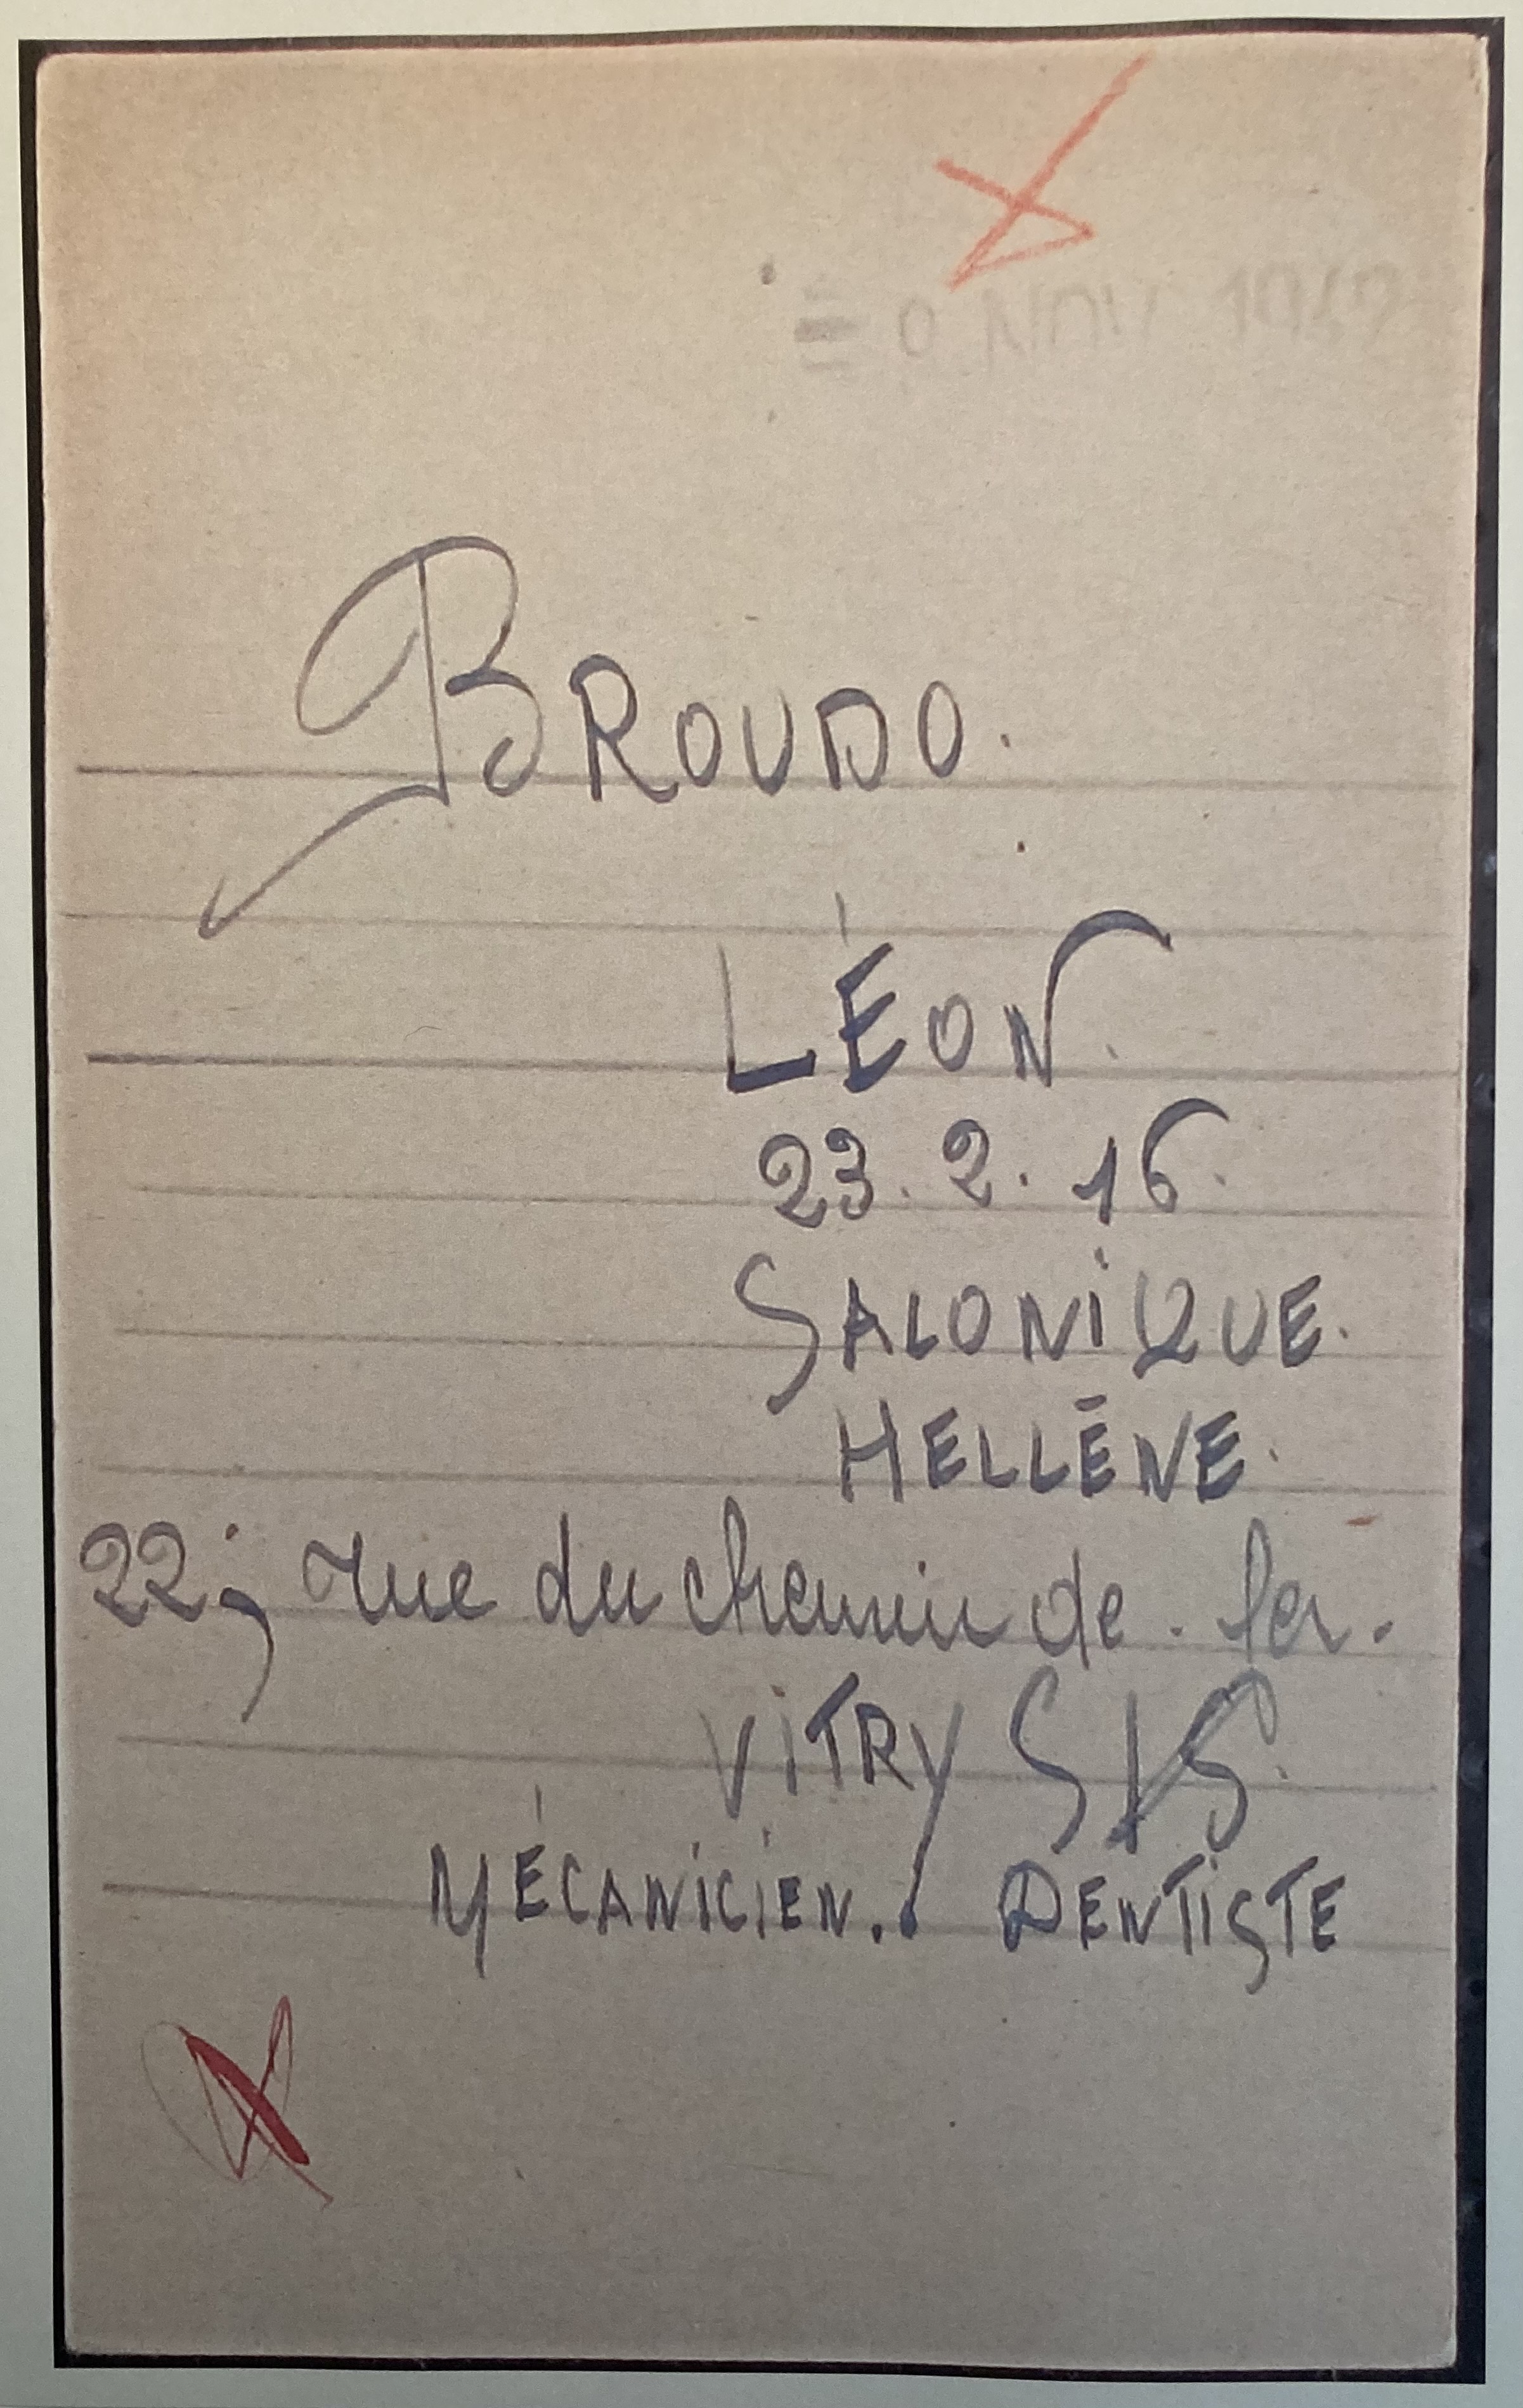 BROUDO.
LÉON.
23. 2. 16.
SALONIQUE.
HELLÈNE.
22, rue du chemin de. fer.
VITRY S/S.
MÉCANICIEN. DENTISTE